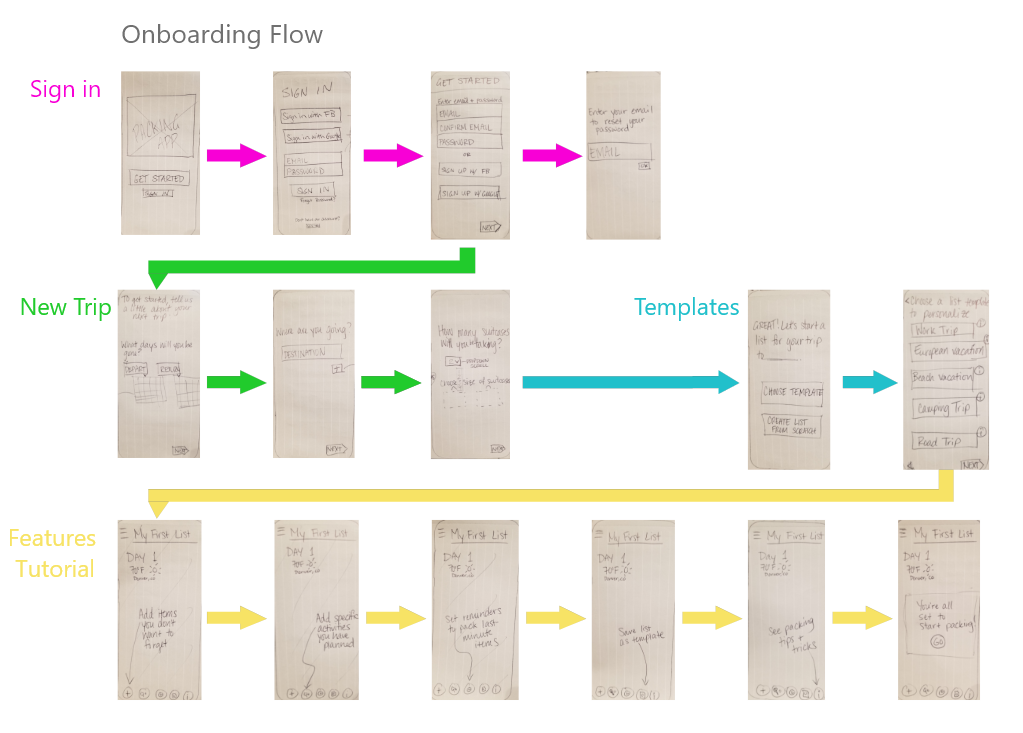 Onboarding Flow
Sign in
PACKING
APP
GET STARTED
SIGN IN
SIGN IN
Sign in with FB
Sign in with Google
EMAIL
PASSWORD
SIGN IN
Forgot Password?
GET STARTED
Enter email + password
EMAIL
CONFIRM EMAIL
PASSWORD
OR
SIGN UP W/ FB
SIGN UP W/ GOOGLE
NEXT
Enter your email
to reset your
password
EMAIL
New Trip
To get started, tell us
a little about your
next trip
What days will you be
gone?
DEPART
RETURN
Where are you going?
DESTINATION
NEXT
How many suitcases
will you be taking?
size of suitcase
Templates
GREAT! Let's start a
list for your trip
to
CHOOSE TEMPLATE
CREATE LIST
FROM SCRATCH
Choose a list template
to personalize
Work Trip
European vacation
Beach vacation
Camping Trip
Road Trip
NEXT
Features
Tutorial
My First List
DAY 1
70°F
Denver, CO
Add items
you don't
want to
forget
My First List
DAY 1
70°F
Denver, CO
Add specific
activities
you have
planned
My First List
DAY 1
70°F
Denver, CO
Set reminders
to pack last-
minute
items
My First List
DAY 1
70°F
Denver, CO
Save list
as template
My First List
DAY 1
70°F
Denver, CO
See packing
tips +
tricks
My First List
DAY 1
70°F
Denver, CO
You're all
set to
start packing!
GO